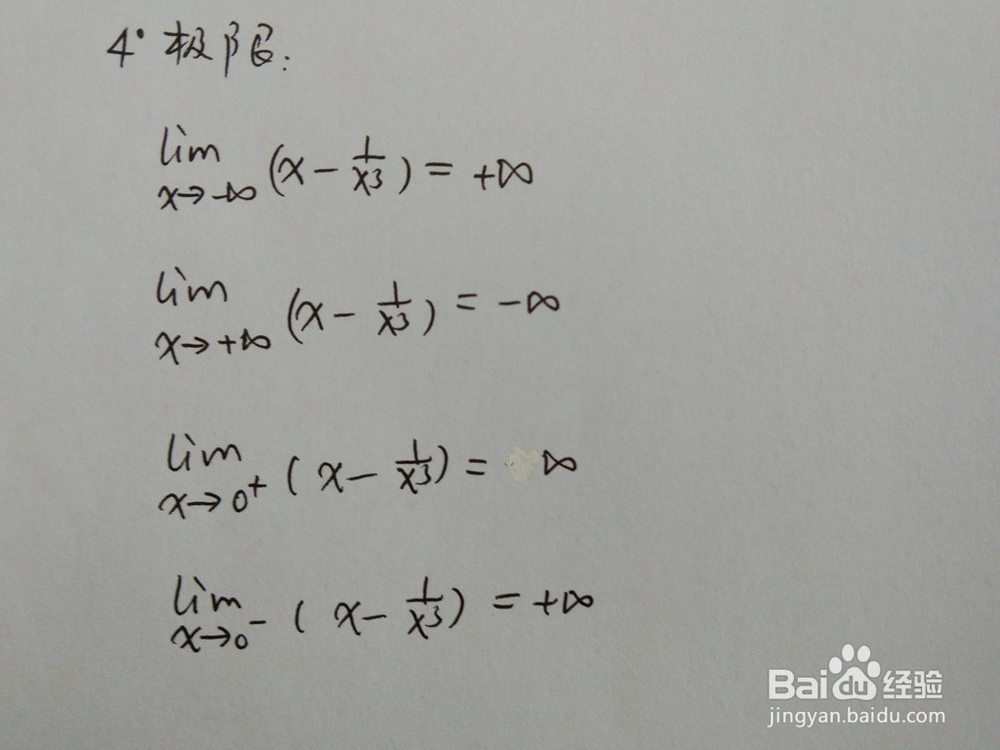 4° 极限:
lim
x→-∞ (x - 1/x³) = +∞
lim
x→+∞ (x - 1/x³) = -∞
lim
x→0⁺ (x - 1/x³) = ∞
lim
x→0⁻ (x - 1/x³) = +∞
Baidu 经验
jingyan.baidu.com